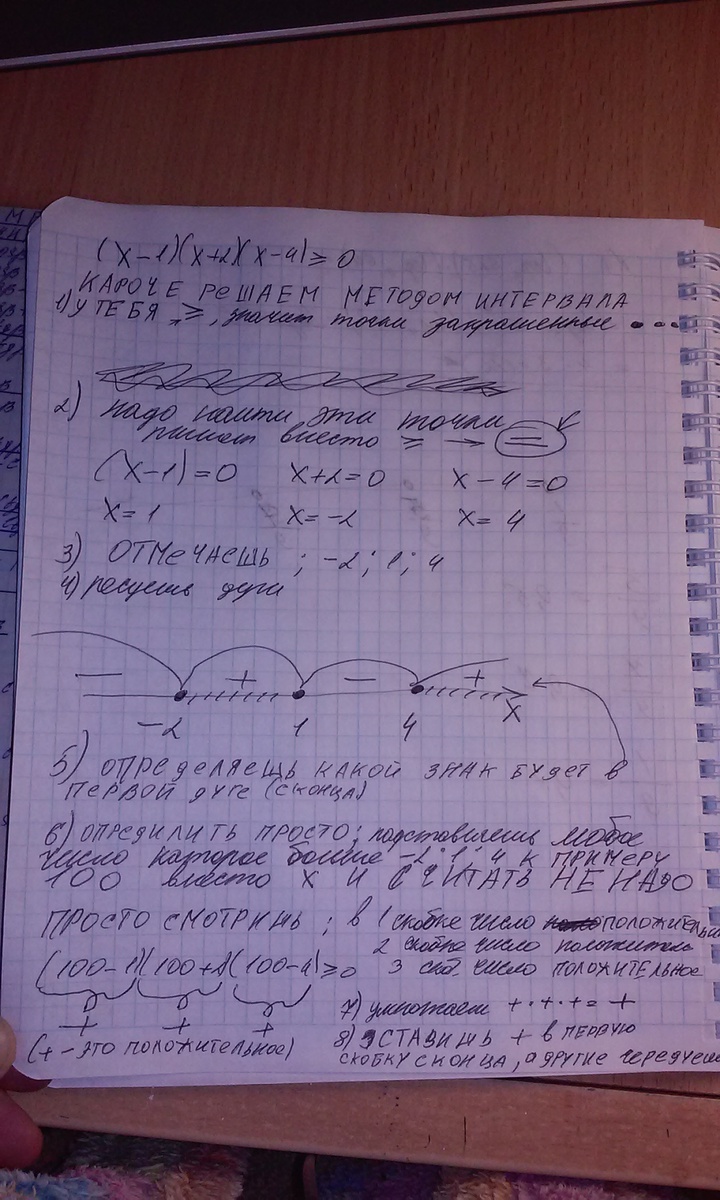 (х-1)(х+2)(х-4)≥0
КАРОЧЕ РЕШАЕМ МЕТОДОМ ИНТЕРВАЛА
1) У ТЕБЯ ≥, значит точки закрашенные
2) надо найти эти точки
пишешь вместо ≥ → =
(х-1)=0 х+2=0 х-4=0
х=1 х=-2 х=4
3) ОТМЕЧАЕШЬ ; -2; 1; 4
4) рисуешь дуги
− + − +
-2 1 4 х
5) ОПРЕДЕЛЯЕШЬ КАКОЙ ЗНАК БУДЕТ В
ПЕРВОЙ ДУГЕ (С КОНЦА)
6) ОПРЕДИЛИТЬ ПРОСТО; подставляешь любое
число которое больше -2; 1; 4 К ПРИМЕРУ
100 вместо Х И СЧИТАТЬ НЕ НАДО
ПРОСТО СМОТРИШЬ; в 1 скобке число ПОЛОЖИТЕЛЬН
2 скобке число положитель
(100-1)(100+2)(100-4)≥0 3 скб. число ПОЛОЖИТЕЛЬНОЕ
+ + +
7) умножаем +·+·+=+
(+ - ЭТО ПОЛОЖИТЕЛЬНОЕ)
8) СТАВИШЬ + в ПЕРВУЮ
СКОБКУ С КОНЦА, а другие чередуеш